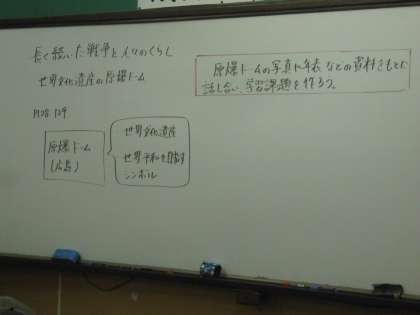 長く続いた戦争と人々のくらし
世界文化遺産の原爆ドーム
原爆ドームの写真や年表などの資料をもとに
話し合い、学習課題を作ろう。
P128 129
原爆ドーム
(広島)
世界文化遺産
世界平和を目指す
シンボル